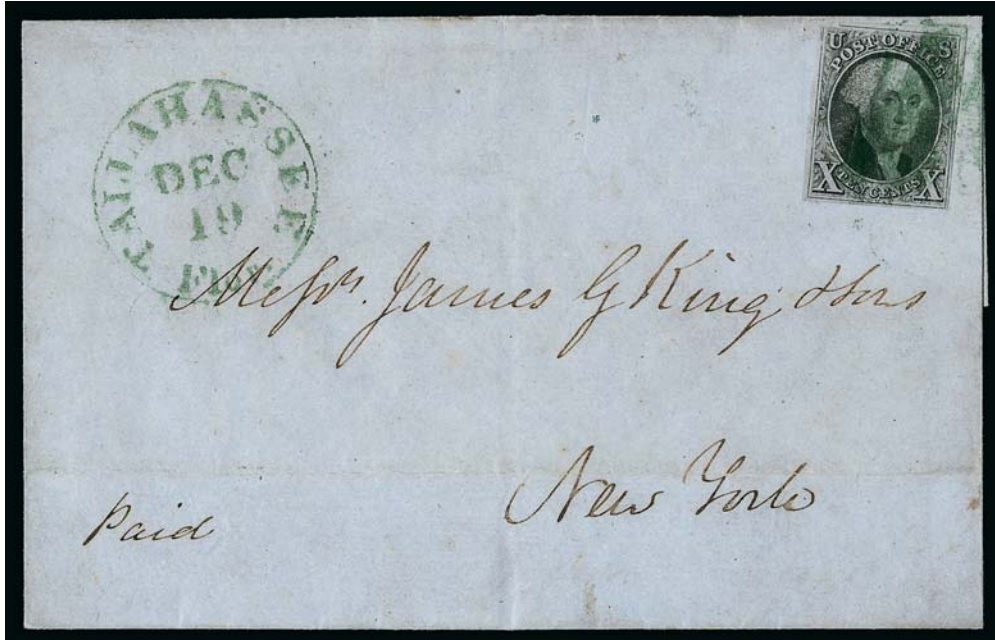 U S
POST OFFICE
X TEN CENTS X
TALLAHASSEE
DEC
19
Messrs. James G King & Sons
New York
Paid